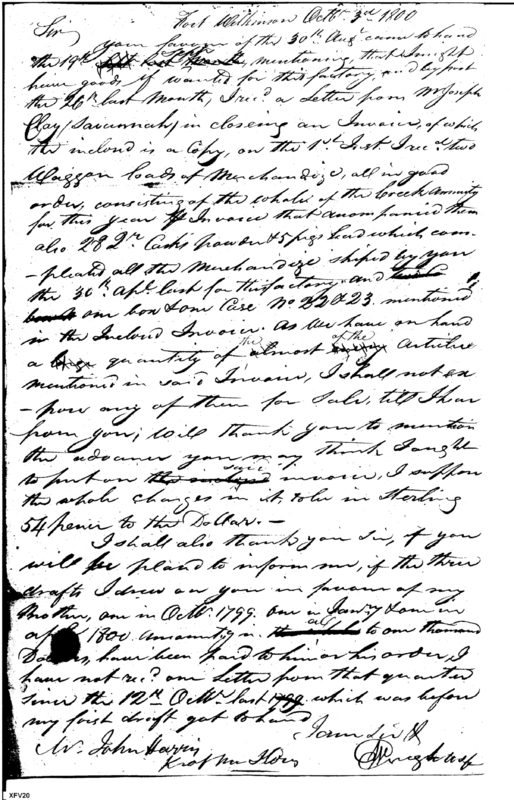 Fort Wilkinson Octr. 3rd 1800
Sir
your favour of the 30th Augt came to hand
the 19th mentioning, that I might
have goods if wanted for this factory, and by post
the 26th last Month, I recd. a Letter from Mr Joseph
Clay (Savannah) in closeing an Invoice, of which
the inclosd is a Copy, on the 1st Inst I recd. two
Waggon loads of Merchandize, all in good
order, consisting of the whole of the Creek Annuity
for this year Invoice that accompanied them
also 28 Casks powder & 5 pigs lead which com-
-pleated all the Merchandize shiped by you
the 30th Apl. last for this factory. and
one box & one Case No 22 & 23. mentioned
in the Inclosd Invoice. As We have on hand
a quantity of the almost of the Articles
mentioned in said Invoice, I shall not ex-
-pose any of them for Sale, till I hear
from you; Will thank you to mention
the advance you may think I ought
to put on said invoice, I suppose
the whole charges in it, to be in Sterling
54 pence to the Dollar. —
I shall also thank you Sir, if you
will be pleasd to inform me, if the three
drafts I drew on you in favour of my
Brother, one in Octr. 1799. one in Janry & one in
1800 amounting in all to one thousand
Dollars, have been paid to him or his order, I
have not recd. one Letter from that quarter
since the 12th Octr. last which was before
my first draft got to hand
I am Sir &
Mr. John Harris
XFV20